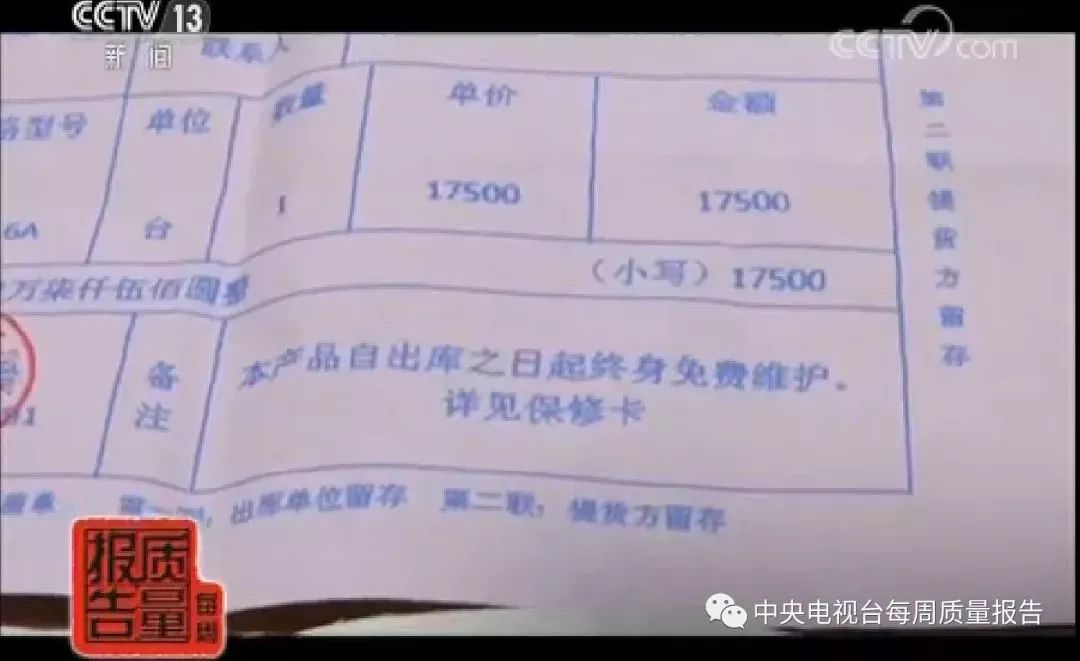 CCTV 13
新闻
CCTV.com
联系人
型号
单位
数量
单价
金额
6A
台
1
17500
17500
万柒仟伍佰圆整
（小写）17500
备注
本产品自出库之日起终身免费维护。
详见保修卡
出库单位留存 第二联：提货方留存
第二联提货方留存
每周质量报告
中央电视台每周质量报告